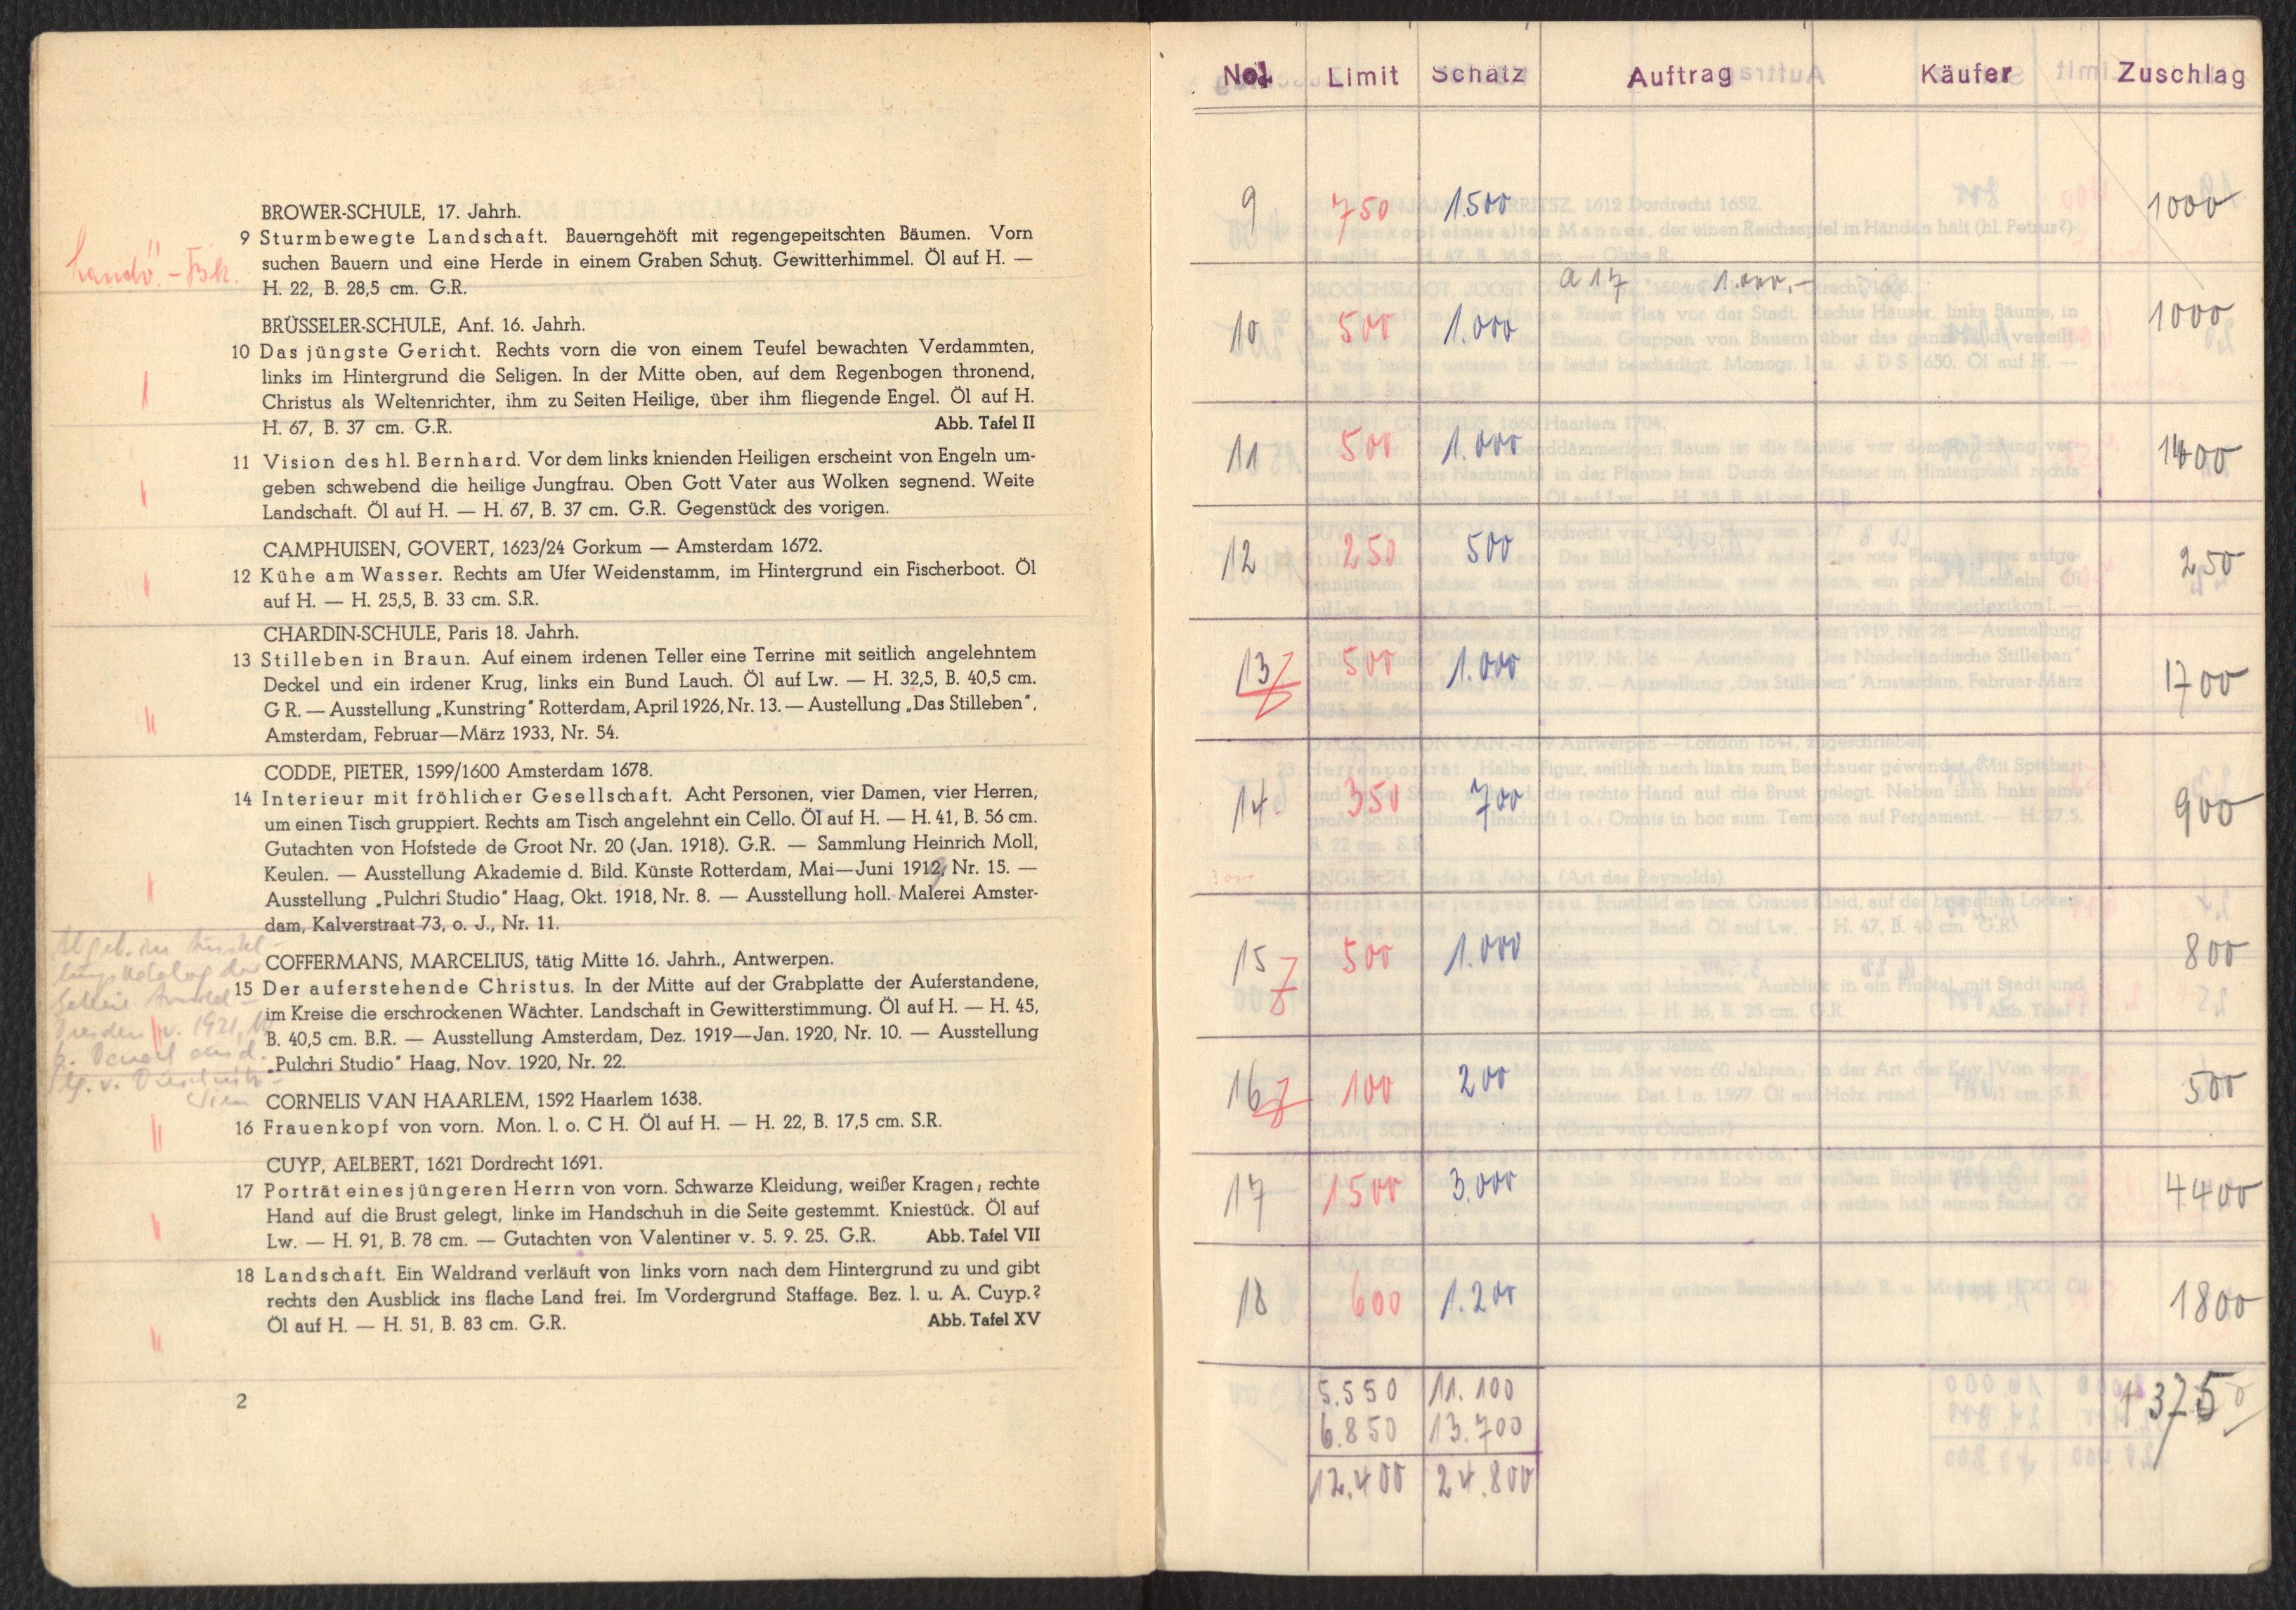 BROWER-SCHULE, 17. Jahrh.
9 Sturmbewegte Landschaft. Bauerngehöft mit regengepeitschten Bäumen. Vorn
suchen Bauern und eine Herde in einem Graben Schutz. Gewitterhimmel. Öl auf H. —
H. 22, B. 28,5 cm. G.R.
BRÜSSELER-SCHULE, Anf. 16. Jahrh.
10 Das jüngste Gericht. Rechts vorn die von einem Teufel bewachten Verdammten,
links im Hintergrund die Seligen. In der Mitte oben, auf dem Regenbogen thronend,
Christus als Weltenrichter, ihm zu Seiten Heilige, über ihm fliegende Engel. Öl auf H.
H. 67, B. 37 cm. G.R. Abb. Tafel II
11 Vision des hl. Bernhard. Vor dem links knienden Heiligen erscheint von Engeln um-
geben schwebend die heilige Jungfrau. Oben Gott Vater aus Wolken segnend. Weite
Landschaft. Öl auf H. — H. 67, B. 37 cm. G.R. Gegenstück des vorigen.
CAMPHUISEN, GOVERT, 1623/24 Gorkum — Amsterdam 1672.
12 Kühe am Wasser. Rechts am Ufer Weidenstamm, im Hintergrund ein Fischerboot. Öl
auf H. — H. 25,5, B. 33 cm. S.R.
CHARDIN-SCHULE, Paris 18. Jahrh.
13 Stilleben in Braun. Auf einem irdenen Teller eine Terrine mit seitlich angelehntem
Deckel und ein irdener Krug, links ein Bund Lauch. Öl auf Lw. — H. 32,5, B. 40,5 cm.
G R. — Ausstellung „Kunstring" Rotterdam, April 1926, Nr. 13. — Austellung „Das Stilleben",
Amsterdam, Februar—März 1933, Nr. 54.
CODDE, PIETER, 1599/1600 Amsterdam 1678.
14 Interieur mit fröhlicher Gesellschaft. Acht Personen, vier Damen, vier Herren,
um einen Tisch gruppiert. Rechts am Tisch angelehnt ein Cello. Öl auf H. — H. 41, B. 56 cm.
Gutachten von Hofstede de Groot Nr. 20 (Jan. 1918). G.R. — Sammlung Heinrich Moll,
Keulen. — Ausstellung Akademie d. Bild. Künste Rotterdam, Mai—Juni 1912, Nr. 15. —
Ausstellung „Pulchri Studio" Haag, Okt. 1918, Nr. 8. — Ausstellung holl. Malerei Amster-
dam, Kalverstraat 73, o. J., Nr. 11.
COFFERMANS, MARCELIUS, tätig Mitte 16. Jahrh., Antwerpen.
15 Der auferstehende Christus. In der Mitte auf der Grabplatte der Auferstandene,
im Kreise die erschrockenen Wächter. Landschaft in Gewitterstimmung. Öl auf H. — H. 45,
B. 40,5 cm. B.R. — Ausstellung Amsterdam, Dez. 1919—Jan. 1920, Nr. 10. — Ausstellung
„Pulchri Studio" Haag, Nov. 1920, Nr. 22.
CORNELIS VAN HAARLEM, 1592 Haarlem 1638.
16 Frauenkopf von vorn. Mon. l. o. C H. Öl auf H. — H. 22, B. 17,5 cm. S.R.
CUYP, AELBERT, 1621 Dordrecht 1691.
17 Porträt eines jüngeren Herrn von vorn. Schwarze Kleidung, weißer Kragen; rechte
Hand auf die Brust gelegt, linke im Handschuh in die Seite gestemmt. Kniestück. Öl auf
Lw. — H. 91, B. 78 cm. — Gutachten von Valentiner v. 5. 9. 25. G.R. Abb. Tafel VII
18 Landschaft. Ein Waldrand verläuft von links vorn nach dem Hintergrund zu und gibt
rechts den Ausblick ins flache Land frei. Im Vordergrund Staffage. Bez. l. u. A. Cuyp.?
Öl auf H. — H. 51, B. 83 cm. G.R. Abb. Tafel XV
2
No. Limit Schätz Auftrag Käufer Zuschlag
9 750 1500 1000
a 17 1.000.-
10 500 1.000 1000
11 500 1.000 1400
12 250 500 250
13 500 1.000 1700
14 350 700 900
300
15 500 1.000 800
16 100 200 500
17 1500 3.000 4400
18 600 1.200 1800
5.550 11.100 13750
6.850 13.700
12.400 24.800